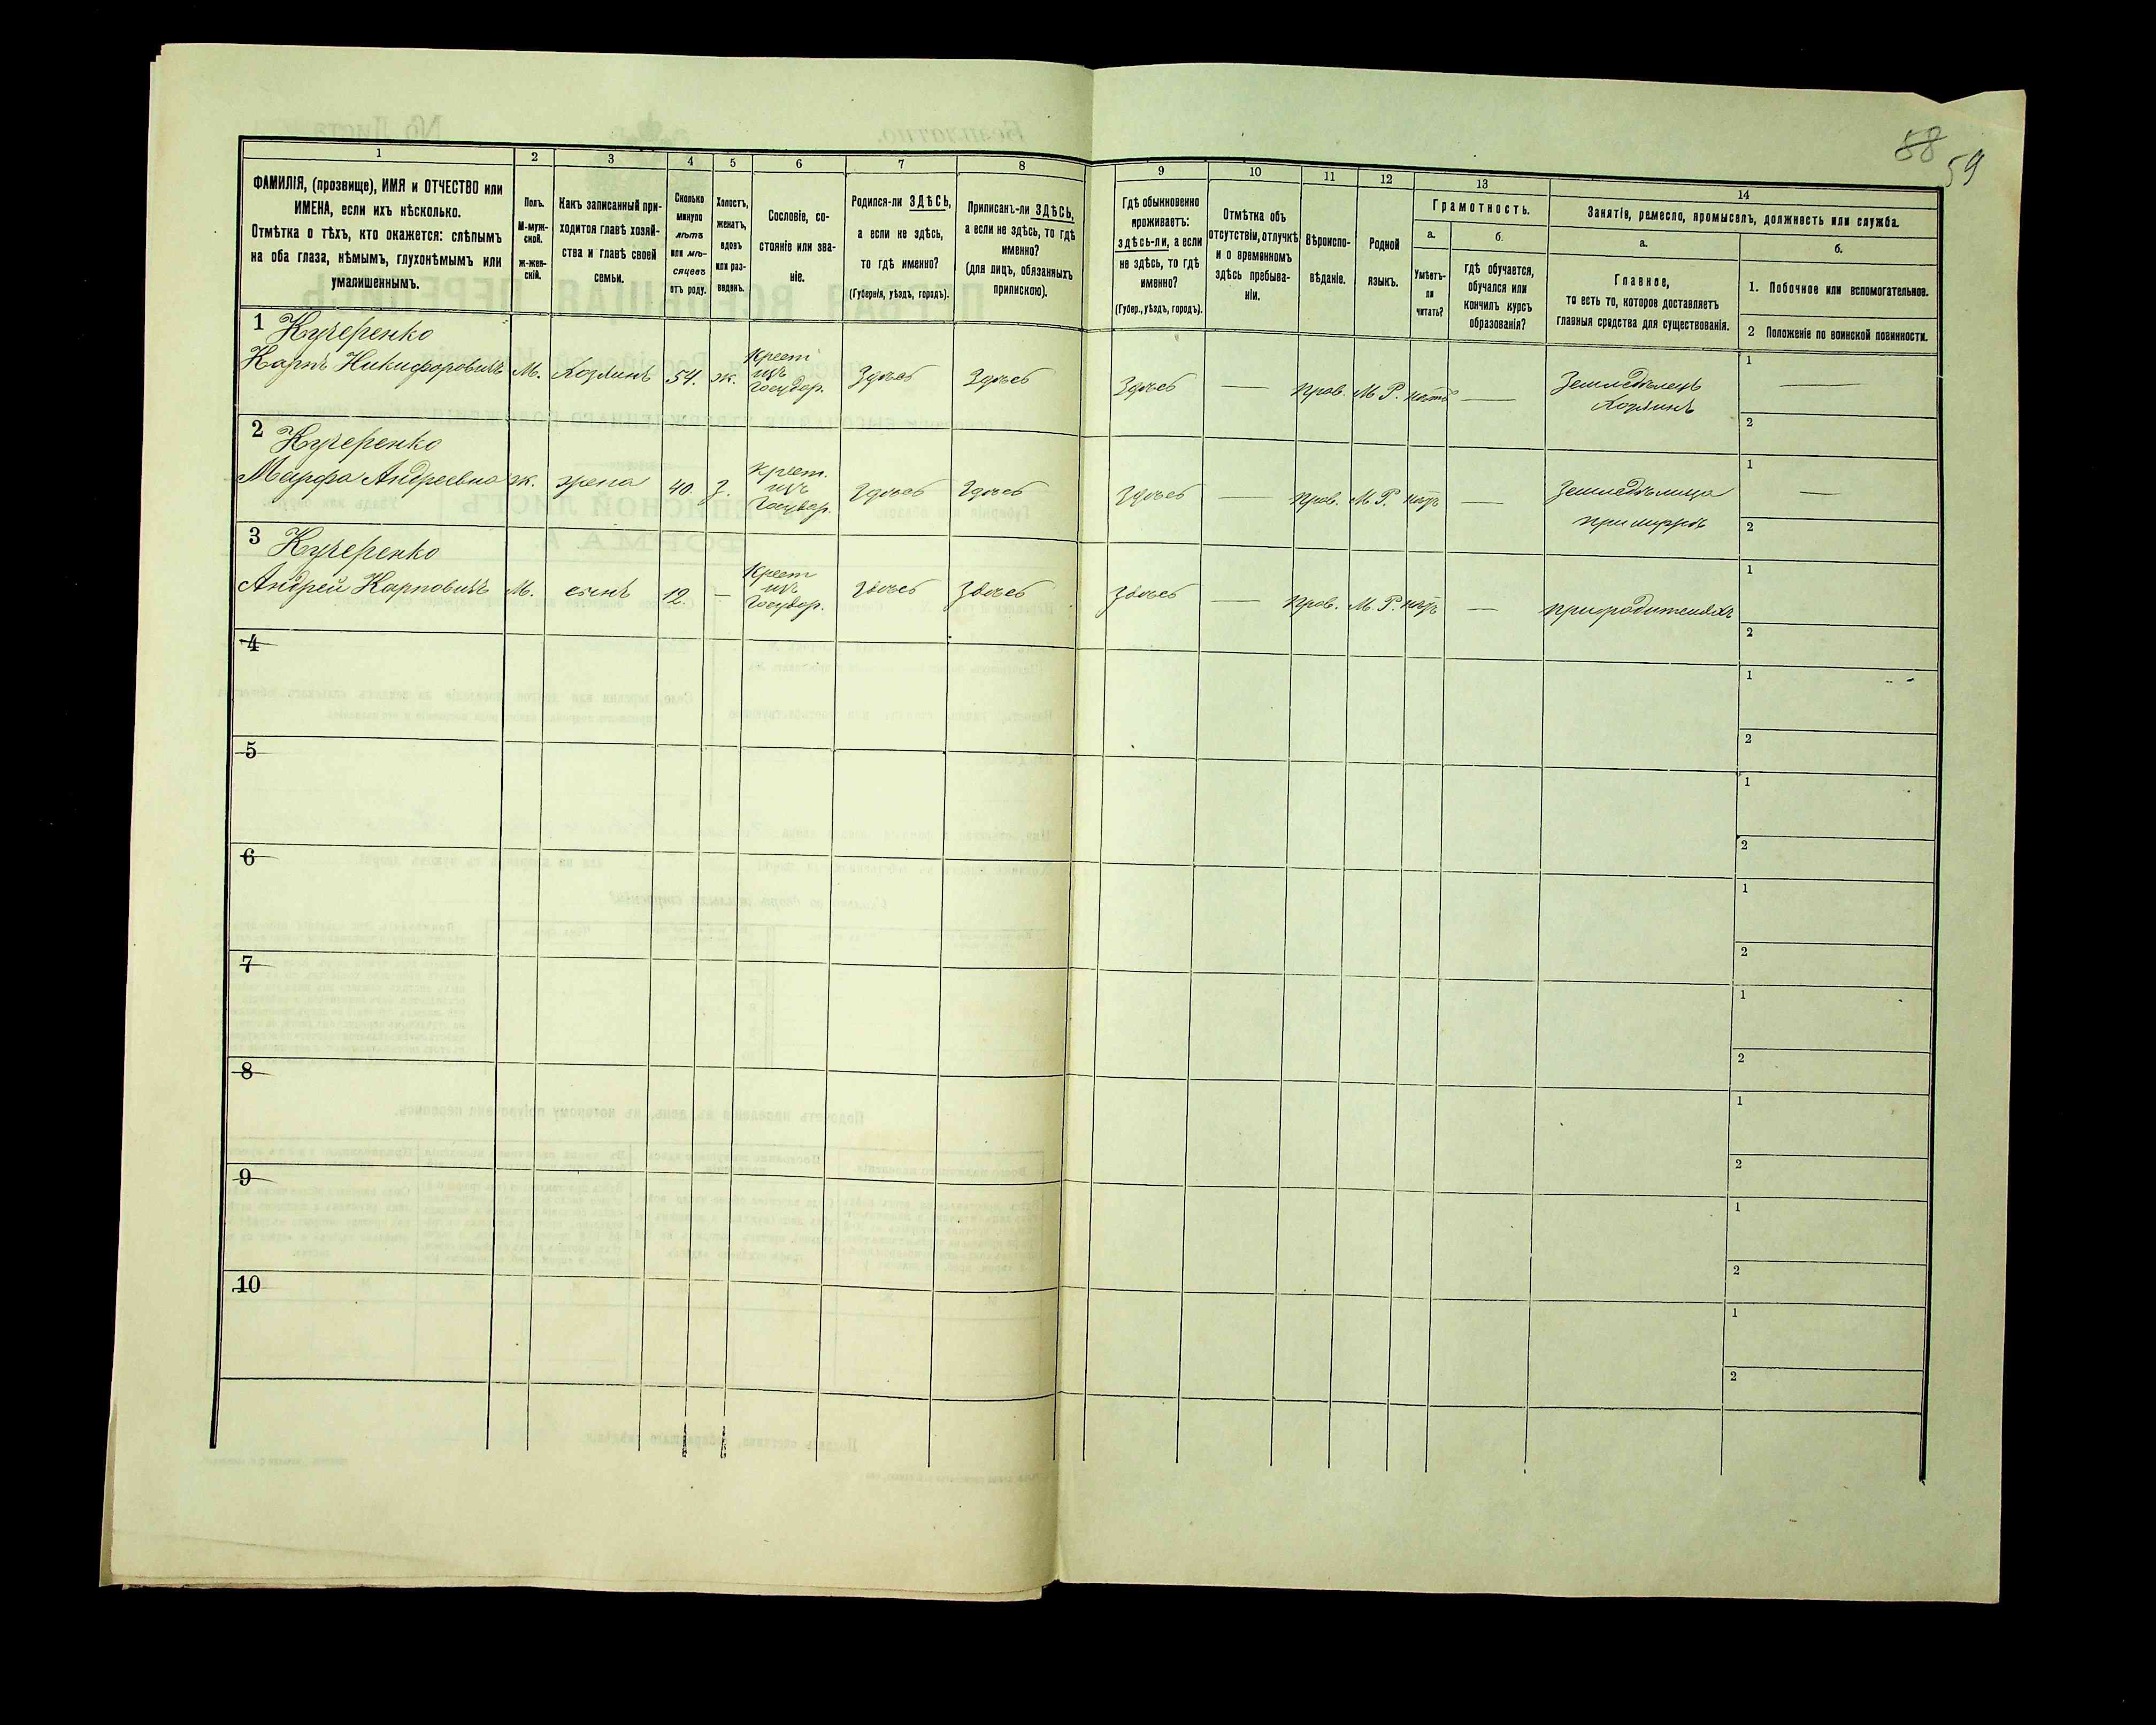 58 59
1 2 3 4 5 6 7 8 9 10 11 12 13 14
ФАМИЛІЯ, (прозвище), ИМЯ и ОТЧЕСТВО или
ИМЕНА, если ихъ нѣсколько.
Отмѣтка о тѣхъ, кто окажется: слѣпымъ
на оба глаза, нѣмымъ, глухонѣмымъ или
умалишеннымъ.
Полъ.
М-муж-
ской.
Ж-жен-
скій.
Какъ записанный при-
ходится главѣ хозяй-
ства и главѣ своей
семьи.
Сколько
минуло
лѣтъ
или мѣ-
сяцевъ
отъ роду.
Холостъ,
женатъ,
вдовъ
или раз-
веденъ.
Сословіе, со-
стояніе или зва-
ніе.
Родился-ли ЗДѢСЬ,
а если не здѣсь,
то гдѣ именно?
(Губернія, уѣздъ, городъ).
Приписанъ-ли ЗДѢСЬ,
а если не здѣсь, то гдѣ
именно?
(для лицъ, обязанныхъ
припискою).
Гдѣ обыкновенно
проживаетъ:
здѣсь-ли, а если
не здѣсь, то гдѣ
именно?
(Губер., уѣздъ, городъ).
Отмѣтка объ
отсутствіи, отлучкѣ
и о временномъ
здѣсь пребыва-
ніи.
Вѣроиспо-
вѣданіе.
Родной
языкъ.
Грамотность.
а.
Умѣетъ-
ли
читать?
б.
гдѣ обучается,
обучался или
кончилъ курсъ
образованія?
Занятія, ремесло, промыселъ, должность или служба.
а.
Главное,
то есть то, которое доставляетъ
главныя средства для существованія.
б.
1. Побочное или вспомогательное.
2 Положеніе по воинской повинности.
1 Кучеренко
Карпъ Никифоровичъ М. Хозяинъ 54. ж. Крест изъ Государ. Здѣсь Здѣсь Здѣсь — Прав. М. Р. нѣтъ — Земледѣлецъ Хозяинъ
1 —
2
2 Кучеренко
Марфа Андреевна ж. жена 40. З. Крест. изъ Государ. Здѣсь Здѣсь Здѣсь — Прав. М. Р. нѣтъ — Земледѣлица при мужѣ
1 —
2
3 Кучеренко
Андрей Карповичъ М. сынъ 12. — Крест изъ Государ. Здѣсь Здѣсь Здѣсь — Прав. М. Р. нѣтъ — при родителяхъ
1
2
4
1
2
5
1
2
6
1
2
7
1
2
8
1
2
9
1
2
10
1
2